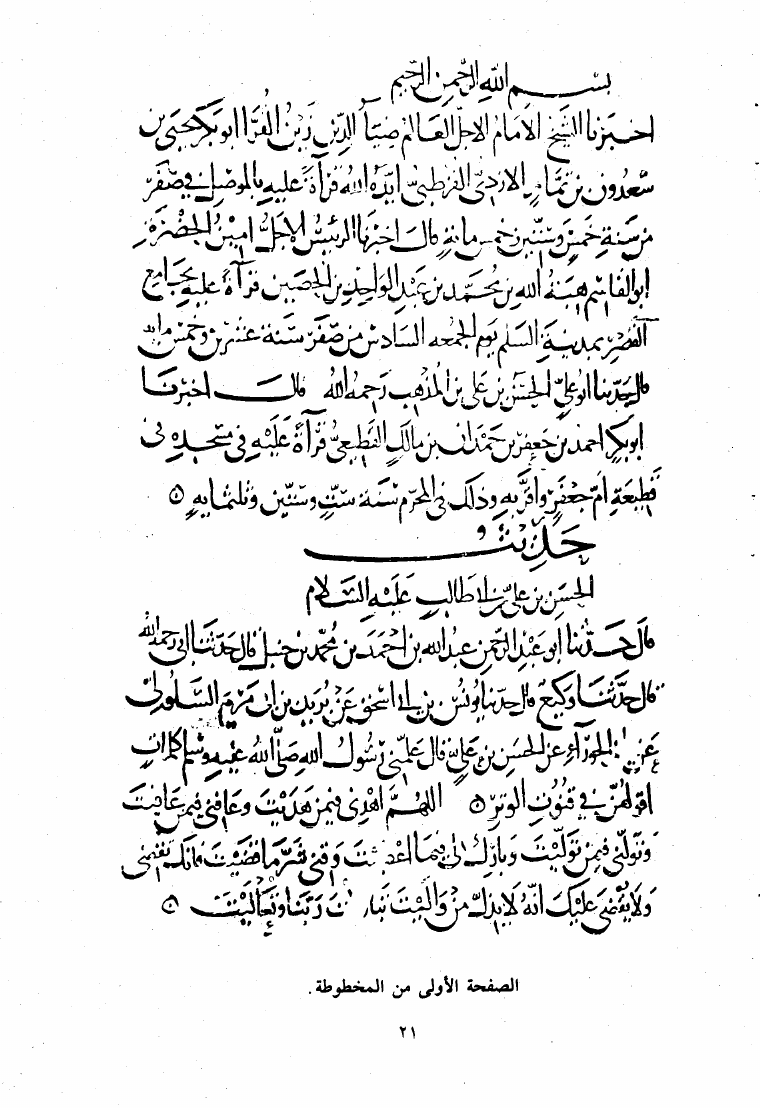 بسم الله الرحمن الرحيم
اخبرنا الشيخ الامام الاجل العالم ضيا الدين زين القرا ابو بكر يحيى بن
سعدون بن تمام الازدي القرطبي ايده الله قرآةً عليه بالموصل في صفر
من سنة خمس وستين وخمس مائة قال اخبرنا الرئيس الاجل امين الحضرة
ابو القاسم هبة الله بن محمد بن عبد الواحد بن الحصين قرآةً عليه بجامع
القصر بمدينة السلم يوم الجمعه السادس من صفر سنة عشرين وخمس مايه
قال حدثنا ابو علي الحسن بن علي بن المذهب رحمه الله قال اخبرنا
ابو بكر احمد بن جعفر بن حمدان بن مالك القطيعي قرآةً عليه في مسجده في
قطيعة ام جعفر واقر به وذلك في المحرم سنة ست وستين وثلثمايه
حديث
الحسن بن علي بن ابي طالب عليه السلام
قال حدثنا ابو عبد الرحمن عبد الله بن احمد بن محمد بن حنبل قال حدثنا ابي رحمه الله
قال حدثنا وكيع قال حدثنا يونس بن ابي اسحق عن بريد بن ابي مريم السلولي
عن ابي الحوراء عن الحسن بن علي قال علمني رسول الله صلى الله عليه وسلم كلمات
اقولهن في قنوت الوتر اللهم اهدني فيمن هديت وعافني فيمن عافيت
وتولني فيمن توليت وبارك لي فيما اعطيت وقني شر ما قضيت فانك تقضي
ولا يقضى عليك انه لا يذل من واليت تباركت ربنا وتعاليت
الصفحة الأولى من المخطوطة.
٢١